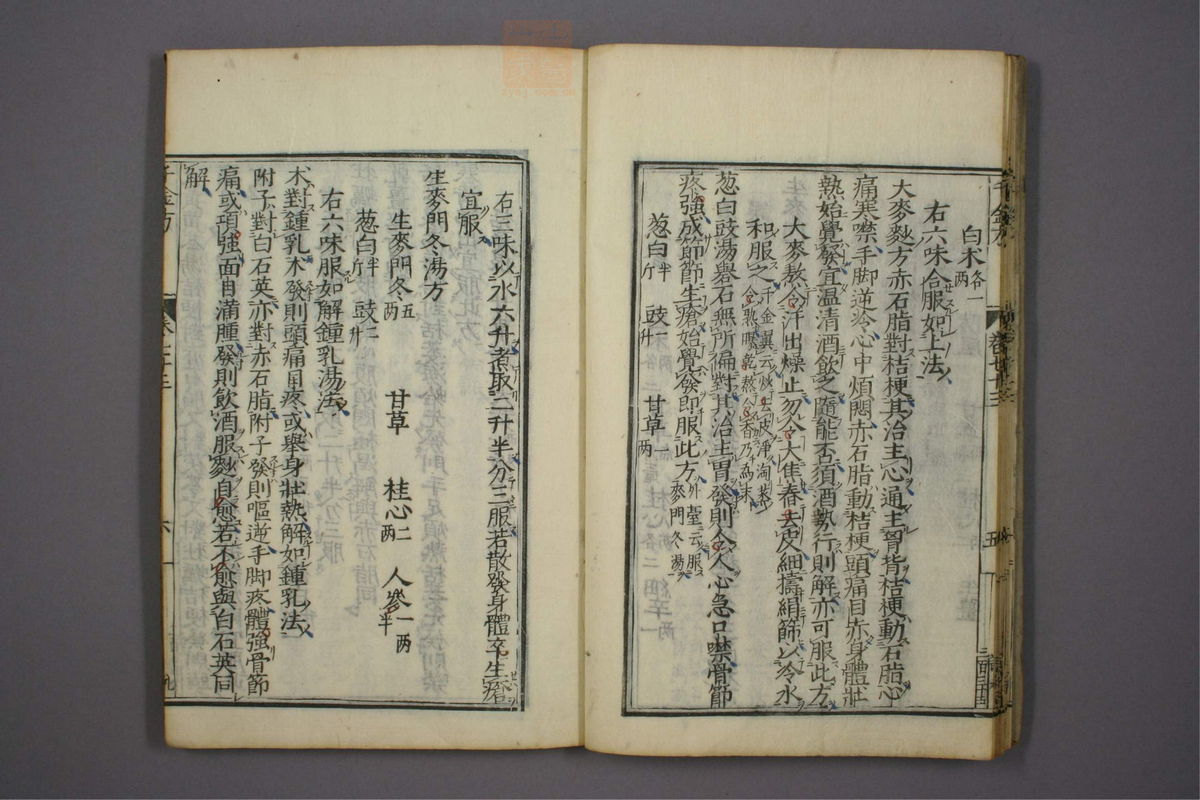 千金方
卷廿三
五
白朮各一
兩
右六味合服如上法
大麥麨方赤石脂對桔梗其治主心通主胷背桔梗動石脂心
痛寒噤手脚逆冷心中煩悶赤石脂動桔梗頭痛目赤身體壯
熱始覺發宜温清酒飲之隨能否須酒勢行則解亦可服此方
大麥熬令汗出燥止勿令大焦舂去皮細擣絹篩以冷水
和服之千金翼云炊去皮淨淘蒸
令熟曝乾熬令香乃為末
葱白豉湯礜石無所偏對其治主胃發則令人心急口噤骨節
疼強成節節生瘡始覺發即服此方外臺云服
麥門冬湯
葱白半
斤 豉二
升 甘草一
兩
右三味以水六升煮取二升半分三服若散發身體卒生瘡
宜服
生麥門冬湯方
生麥門冬五
兩 甘草 桂心二
兩 人參一兩
半
葱白半
斤 豉二
升
右六味服如解鍾乳湯法
朮對鍾乳朮發則頭痛目疼或舉身壯熱解如鍾乳法
附子對白石英亦對赤石脂附子發則嘔逆手脚疼體強骨節
痛或項強面目滿腫發則飲酒服麨自愈若不愈與白石英同
解
千金方
六